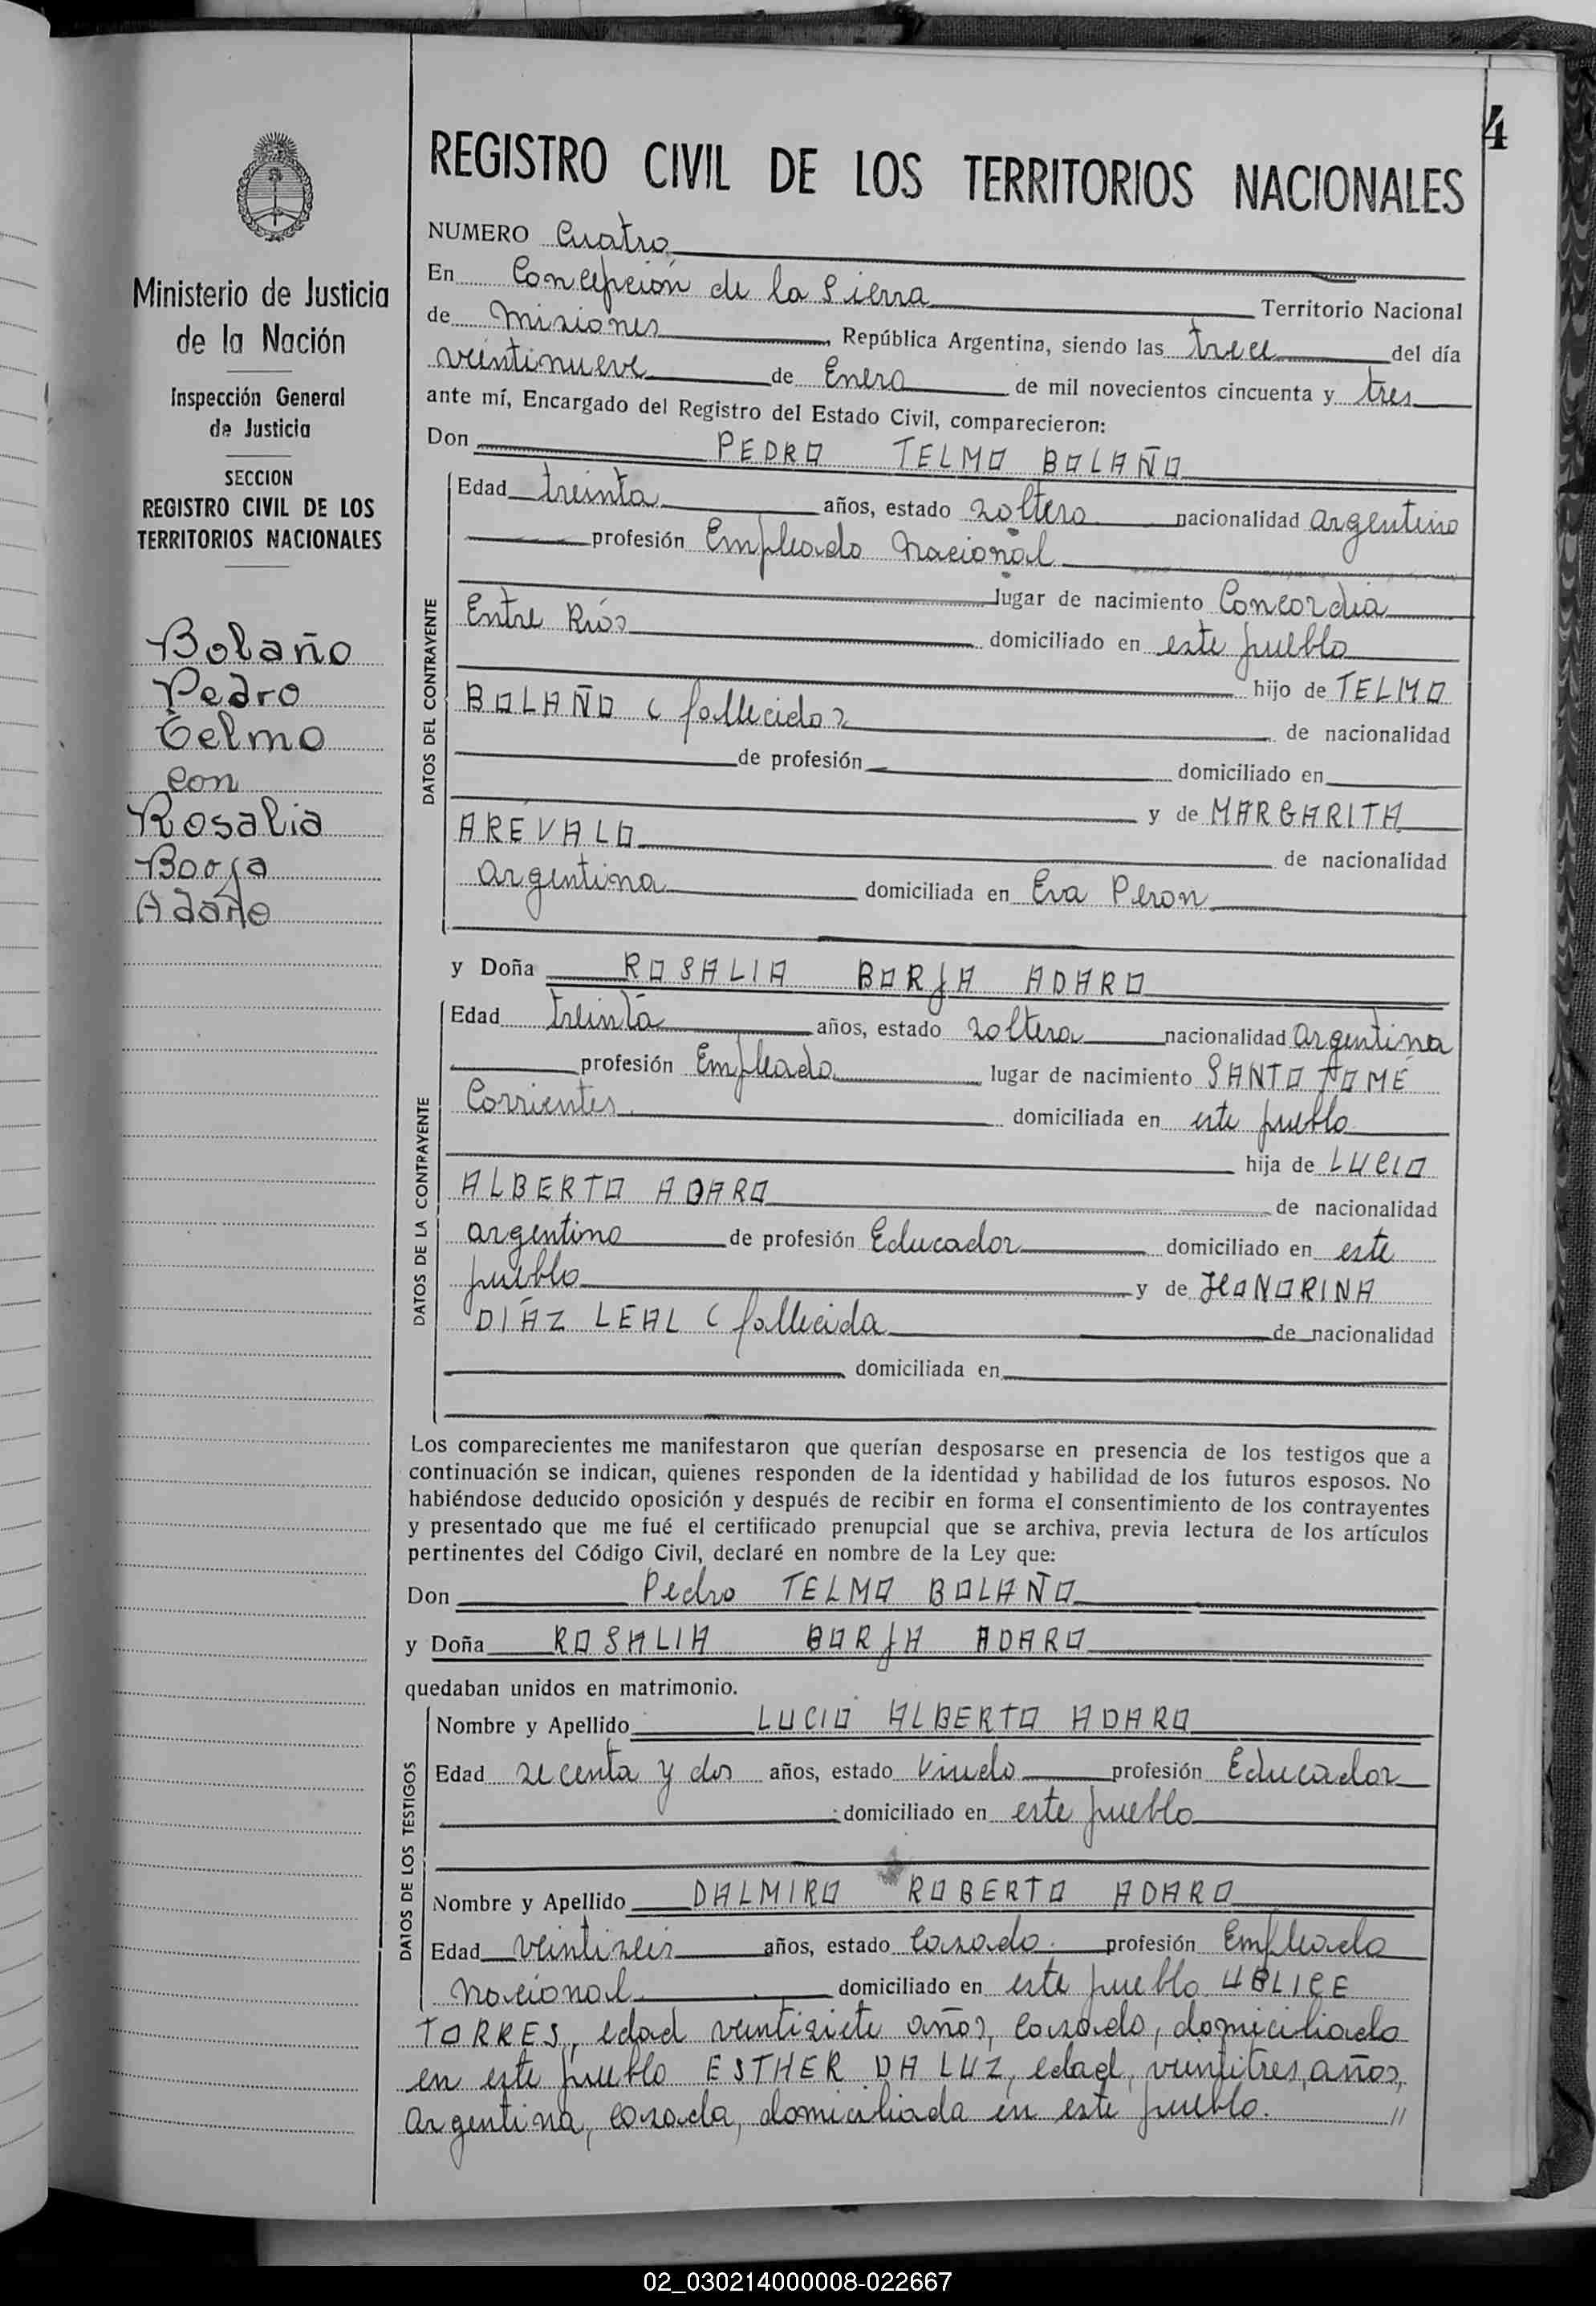 4
REGISTRO CIVIL DE LOS TERRITORIOS NACIONALES
Ministerio de Justicia
de la Nación
Inspección General
de Justicia
SECCION
REGISTRO CIVIL DE LOS
TERRITORIOS NACIONALES
Bolaño
Pedro
Telmo
con
Rosalia
Borja
Adaro
NUMERO Cuatro
En Concepción de la Sierra Territorio Nacional
de Misiones, República Argentina, siendo las trece del día
veintinueve de Enero de mil novecientos cincuenta y tres
ante mí, Encargado del Registro del Estado Civil, comparecieron:
Don PEDRO TELMO BOLAÑO
DATOS DEL CONTRAYENTE
Edad treinta años, estado soltero nacionalidad argentino
profesión Empleado Nacional
lugar de nacimiento Concordia
Entre Ríos domiciliado en este pueblo
hijo de TELMO
BOLAÑO (fallecido) de nacionalidad
de profesión domiciliado en
y de MARGARITA
ARÉVALO de nacionalidad
argentina domiciliada en Eva Peron
y Doña ROSALIA BORJA ADARO
DATOS DE LA CONTRAYENTE
Edad treinta años, estado soltera nacionalidad argentina
profesión Empleada lugar de nacimiento SANTO TOMÉ
Corrientes. domiciliada en este pueblo
hija de LUCIO
ALBERTO ADARO de nacionalidad
argentino de profesión Educador domiciliado en este
pueblo y de HONORINA
DÍAZ LEAL (fallecida de nacionalidad
domiciliada en
Los comparecientes me manifestaron que querían desposarse en presencia de los testigos que a
continuación se indican, quienes responden de la identidad y habilidad de los futuros esposos. No
habiéndose deducido oposición y después de recibir en forma el consentimiento de los contrayentes
y presentado que me fué el certificado prenupcial que se archiva, previa lectura de los artículos
pertinentes del Código Civil, declaré en nombre de la Ley que:
Don Pedro TELMO BOLAÑO
y Doña ROSALIA BORJA ADARO
quedaban unidos en matrimonio.
DATOS DE LOS TESTIGOS
Nombre y Apellido LUCIO ALBERTO ADARO
Edad secenta y dos años, estado Viudo profesión Educador
domiciliado en este pueblo
Nombre y Apellido DALMIRO ROBERTO ADARO
Edad veintiseis años, estado casado. profesión Empleado
nacional domiciliado en este pueblo UBLICE
TORRES, edad veintisiete años, casado, domiciliado
en este pueblo ESTHER DA LUZ, edad, veintitres, años,
argentina, casada, domiciliada en este pueblo. //
02_030214000008-022667